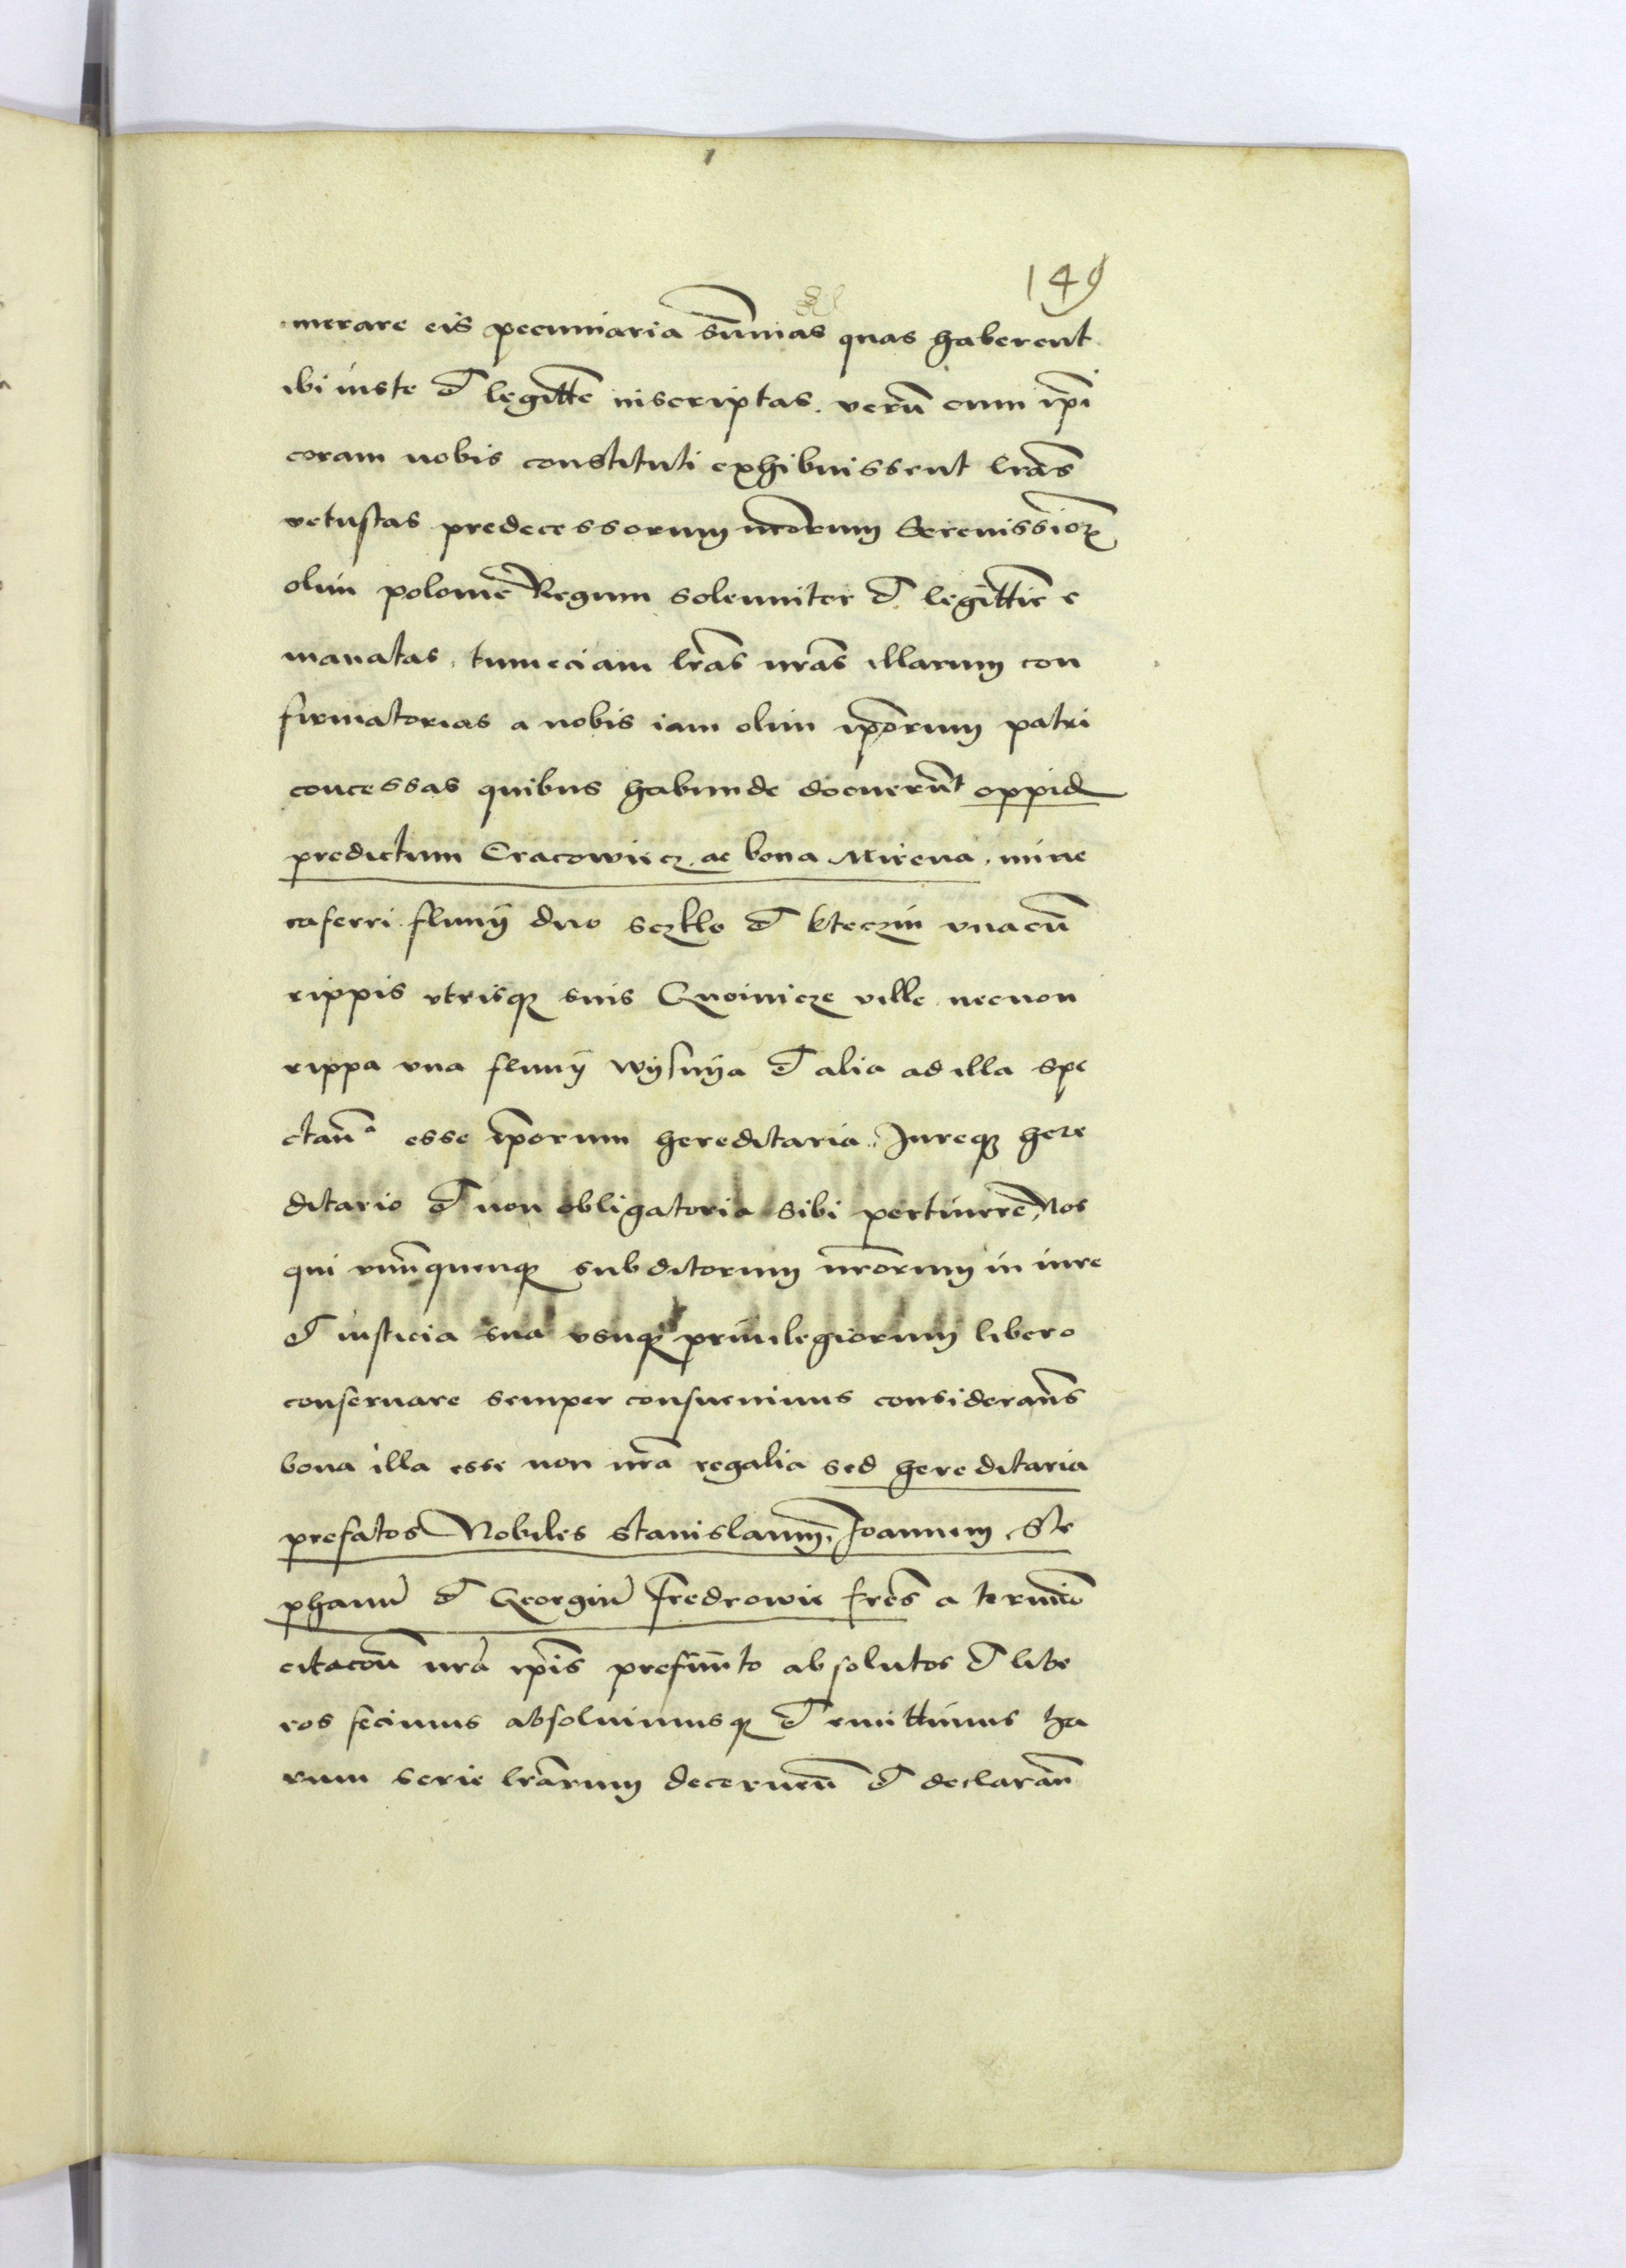 149
merare eis pecuniaria sum̄as quas haberent
ibi iuste et legitt̄e inscriptas. verū cum ip̄i
coram nobis constituti exhibuissent lr̄as
vetustas predecessorum nr̄orum Serenissioꝝ
olim polonie Regum solenniter et legittīe e
manatas, tum eciam lr̄as nr̄as illarum con
firmatorias a nobis iam olim ip̄orum patri
concessas quibus habunde docuerūt oppid
predictum Cracowiecz ac bona Mirena, mine
ra ferri fluuij duo sczklo et kteczin vnacū
rippis vtrisqꝫ suis Gnoinicze ville necnon
rippa vna fluuij wyſnya et alia ad illa spe
ctan̄ᵃ esse ip̄orum hereditaria. Jureqꝫ here
ditario et non obligatorio sibi pertinere, Nos
qui vnūquenqꝫ subditorum nr̄orum in iure
et iusticia sua vsuqꝫ priuilegiorum libero
conseruare semper consueuimus considerān̄s
bona illa esse non nr̄a regalia sed hereditaria
prefatos Nobiles Stanislaum, Joannem, Ste
phanū et Georgiū Fredrowie fr̄es a termīo
citacōn nr̄a ip̄is prefinīto absolutos et libe
ros fecimus absoluimusqꝫ et emittimus ha
rum serie lr̄arum decernen̄ et declaran̄